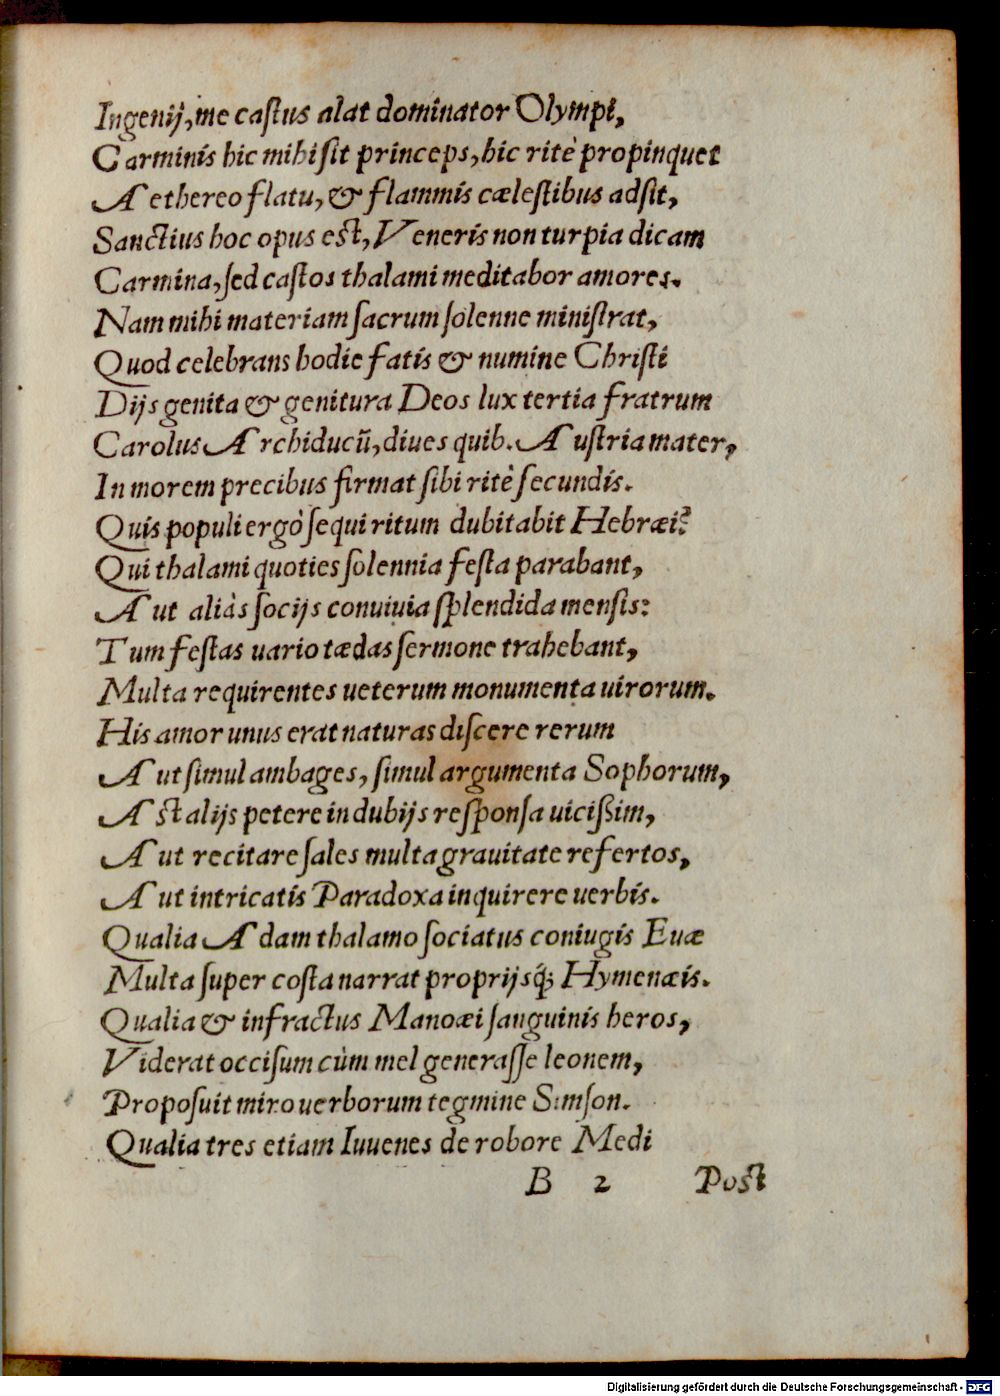 Ingenij, me castus alat dominator Olympi,
Carminis hic mihi sit princeps, hic ritè propinquet
Aethereo flatu, & flammis cælestibus adsit,
Sanctius hoc opus est, Veneris non turpia dicam
Carmina, sed castos thalami meditabor amores.
Nam mihi materiam sacrum solenne ministrat,
Quod celebrans hodie fatis & numine Christi
Dijs genita & genitura Deos lux tertia fratrum
Carolus Archiducũ, diues quib. Austria mater,
In morem precibus firmat sibi ritè secundis.
Quis populi ergò sequi ritum dubitabit Hebræi?
Qui thalami quoties solennia festa parabant,
Aut aliàs socijs conuiuia splendida mensis:
Tum festas uario tædas sermone trahebant,
Multa requirentes ueterum monumenta uirorum.
His amor unus erat naturas discere rerum
Aut simul ambages, simul argumenta Sophorum,
Ast alijs petere in dubijs responsa uicißim,
Aut recitare sales multa grauitate refertos,
Aut intricatis Paradoxa inquirere uerbis.
Qualia Adam thalamo sociatus coniugis Euæ
Multa super costa narrat proprijsq́; Hymenæis.
Qualia & infractus Manoæi sanguinis heros,
Viderat occisum cùm mel generasse leonem,
Proposuit miro uerborum tegmine Simson.
Qualia tres etiam Iuuenes de robore Medi
B 2 Post
Digitalisierung gefördert durch die Deutsche Forschungsgemeinschaft - DFG